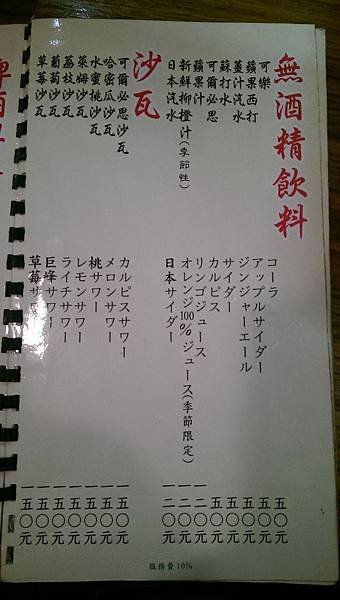 無酒精飲料
可樂 コーラ 五〇元
蘋果西打 アップルサイダー 五〇元
薑汁汽水 ジンジャーエール 五〇元
蘇打水 サイダー 五〇元
可爾必思 カルピス 五〇元
蘋果汁 リンゴジュース 一二〇元
新鮮柳橙汁(季節性) オレンジ100%ジュース(季節限定) 一二〇元
日本汽水 日本サイダー 一二〇元
沙瓦
可爾必思沙瓦 カルピスサワー 一五〇元
哈密瓜沙瓦 メロンサワー 一五〇元
水蜜桃沙瓦 桃サワー 一五〇元
萊姆沙瓦 レモンサワー 一五〇元
荔枝沙瓦 ライチサワー 一五〇元
葡萄沙瓦 巨峰サワー 一五〇元
草莓沙瓦 草莓サワー 一五〇元
服務費10%